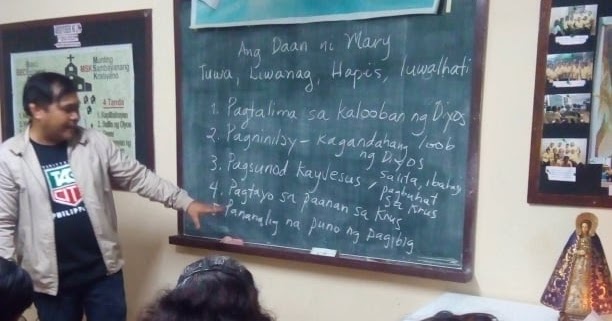 Ang Daan ni Mary
Tuwa, Liwanag, Hapis, luwalhati
1. Pagtalima sa kalooban ng Diyos
2. Pagninilay - kagandahang loob
ng Diyos
3. Pagsunod kay Jesus / salita, ibalay
pagbuhat
sa krus
4. Pagtayo sa paanan sa krus
5. Pananalig na puno ng pagibig
MSK
Munting
Sambayanang
Kristiyano
4 Tanda
TAG
PHILIPPI